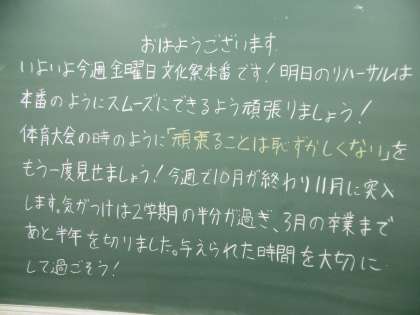 おはようございます
いよいよ今週金曜日文化祭本番です！明日のリハーサルは
本番のようにスムーズにできるよう頑張りましょう！
体育大会の時のように「頑張ることは恥ずかしくない」を
もう一度見せましょう！今週で10月が終わり11月に突入
します。気がつけば2学期の半分が過ぎ、3月の卒業まで
あと半年を切りました。与えられた時間を大切に
して過ごそう！